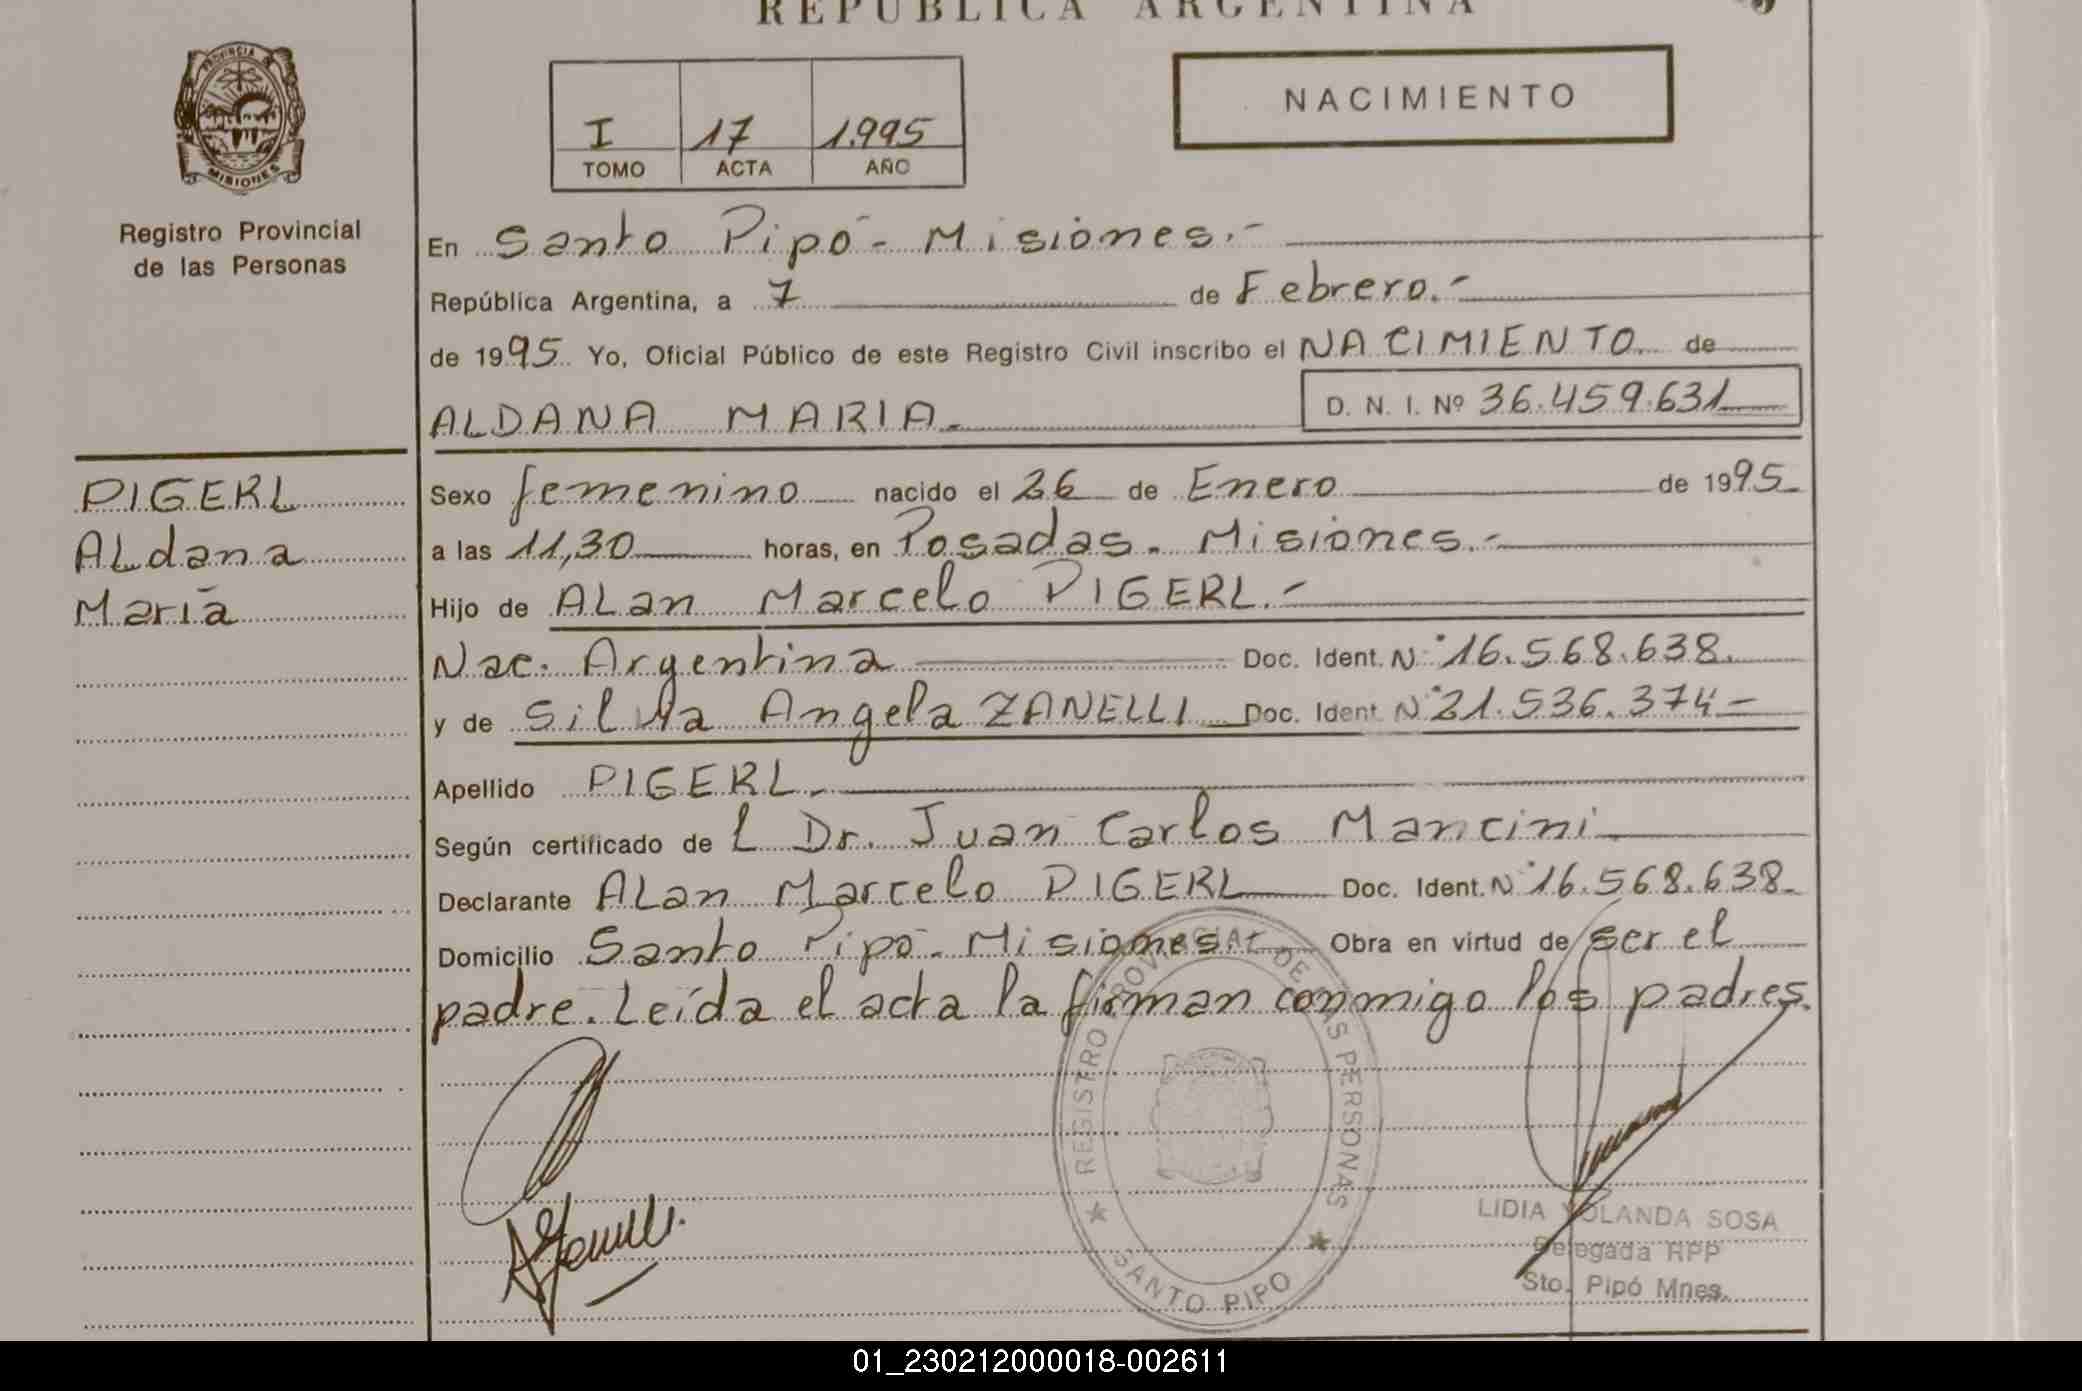 REPUBLICA ARGENTINA
PROVINCIA
MISIONES
Registro Provincial
de las Personas
I 17 1.995
TOMO ACTA AÑO
NACIMIENTO
En Santo Pipó - Misiones.-
República Argentina, a 7 de Febrero.-
de 1995 Yo, Oficial Público de este Registro Civil inscribo el NACIMIENTO de
ALDANA MARIA.
D. N. I. Nº 36.459.631
PIGERL
ALdana
María
Sexo femenino nacido el 26 de Enero de 1995
a las 11,30 horas, en Posadas. Misiones.-
Hijo de ALan Marcelo PIGERL.-
Nac. Argentina Doc. Ident. N° 16.568.638.
y de Silvia Angela ZANELLI Doc. Ident N° 21.536.374-
Apellido PIGERL.
Según certificado de l Dr. Juan Carlos Mancini
Declarante ALan Marcelo PIGERL Doc. Ident. N° 16.568.638.
Domicilio Santo Pipó - Misiones.- Obra en virtud de ser el
padre. Leída el acta la firman conmigo los padres.
REGISTRO PROVINCIAL DE LAS PERSONAS
SANTO PIPO
LIDIA YOLANDA SOSA
Delegada RPP
Sto. Pipó Mnes.
01_230212000018-002611